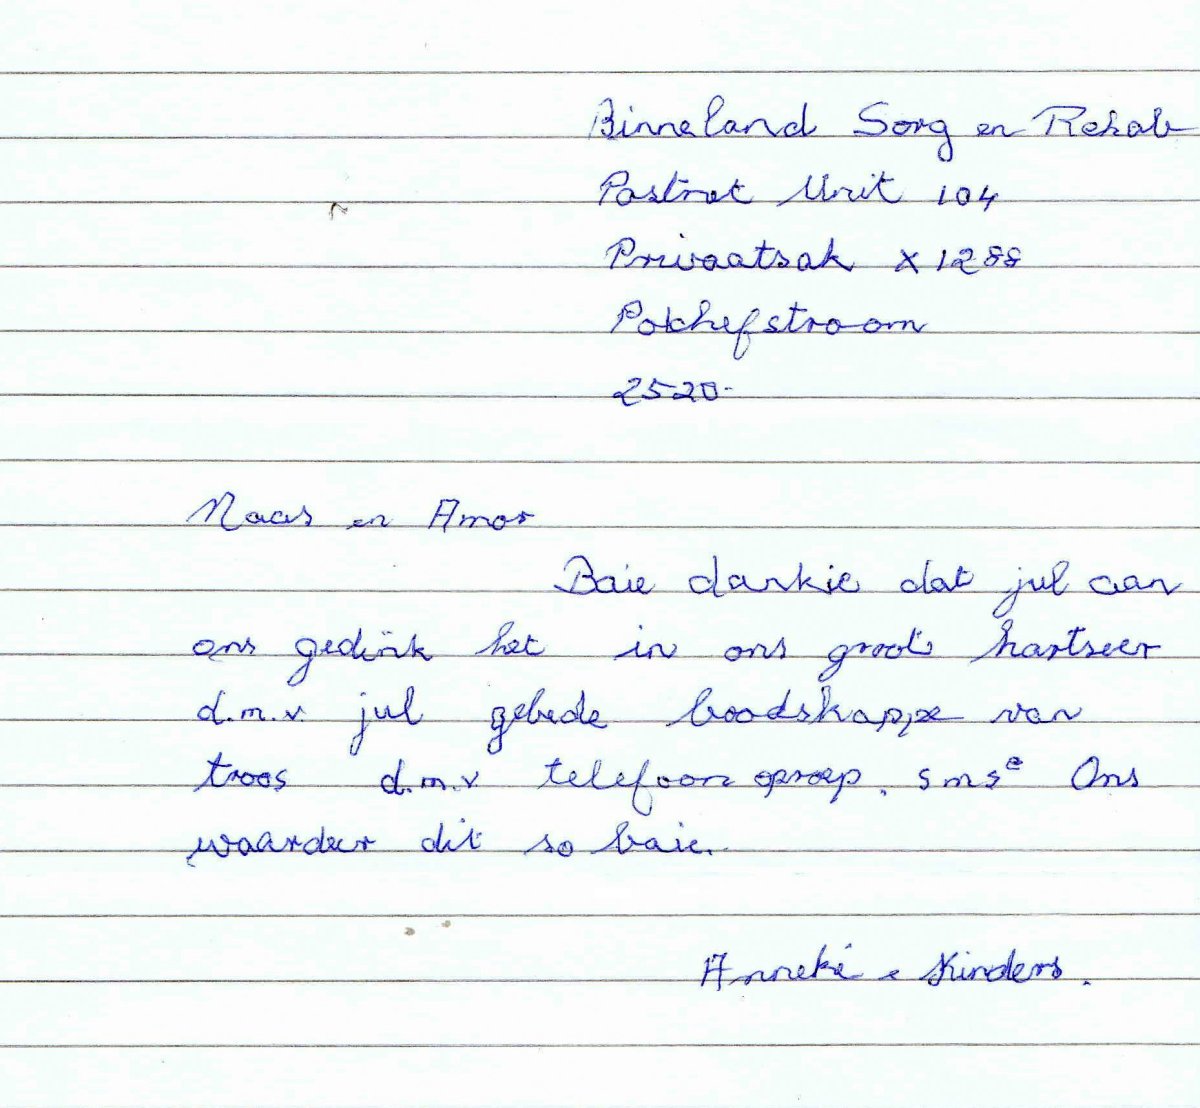 Binneland Sorg en Rehab
Postnet Unit 104
Privaatsak X1288
Potchefstroom
2520.
Naas en Amor
Baie dankie dat jul aan
ons gedink het in ons groot hartseer
d.m.v jul gebede boodskappe van
troos d.m.v telefoon oproep. smse Ons
waardeer dit so baie.
Anneke e Kinders.